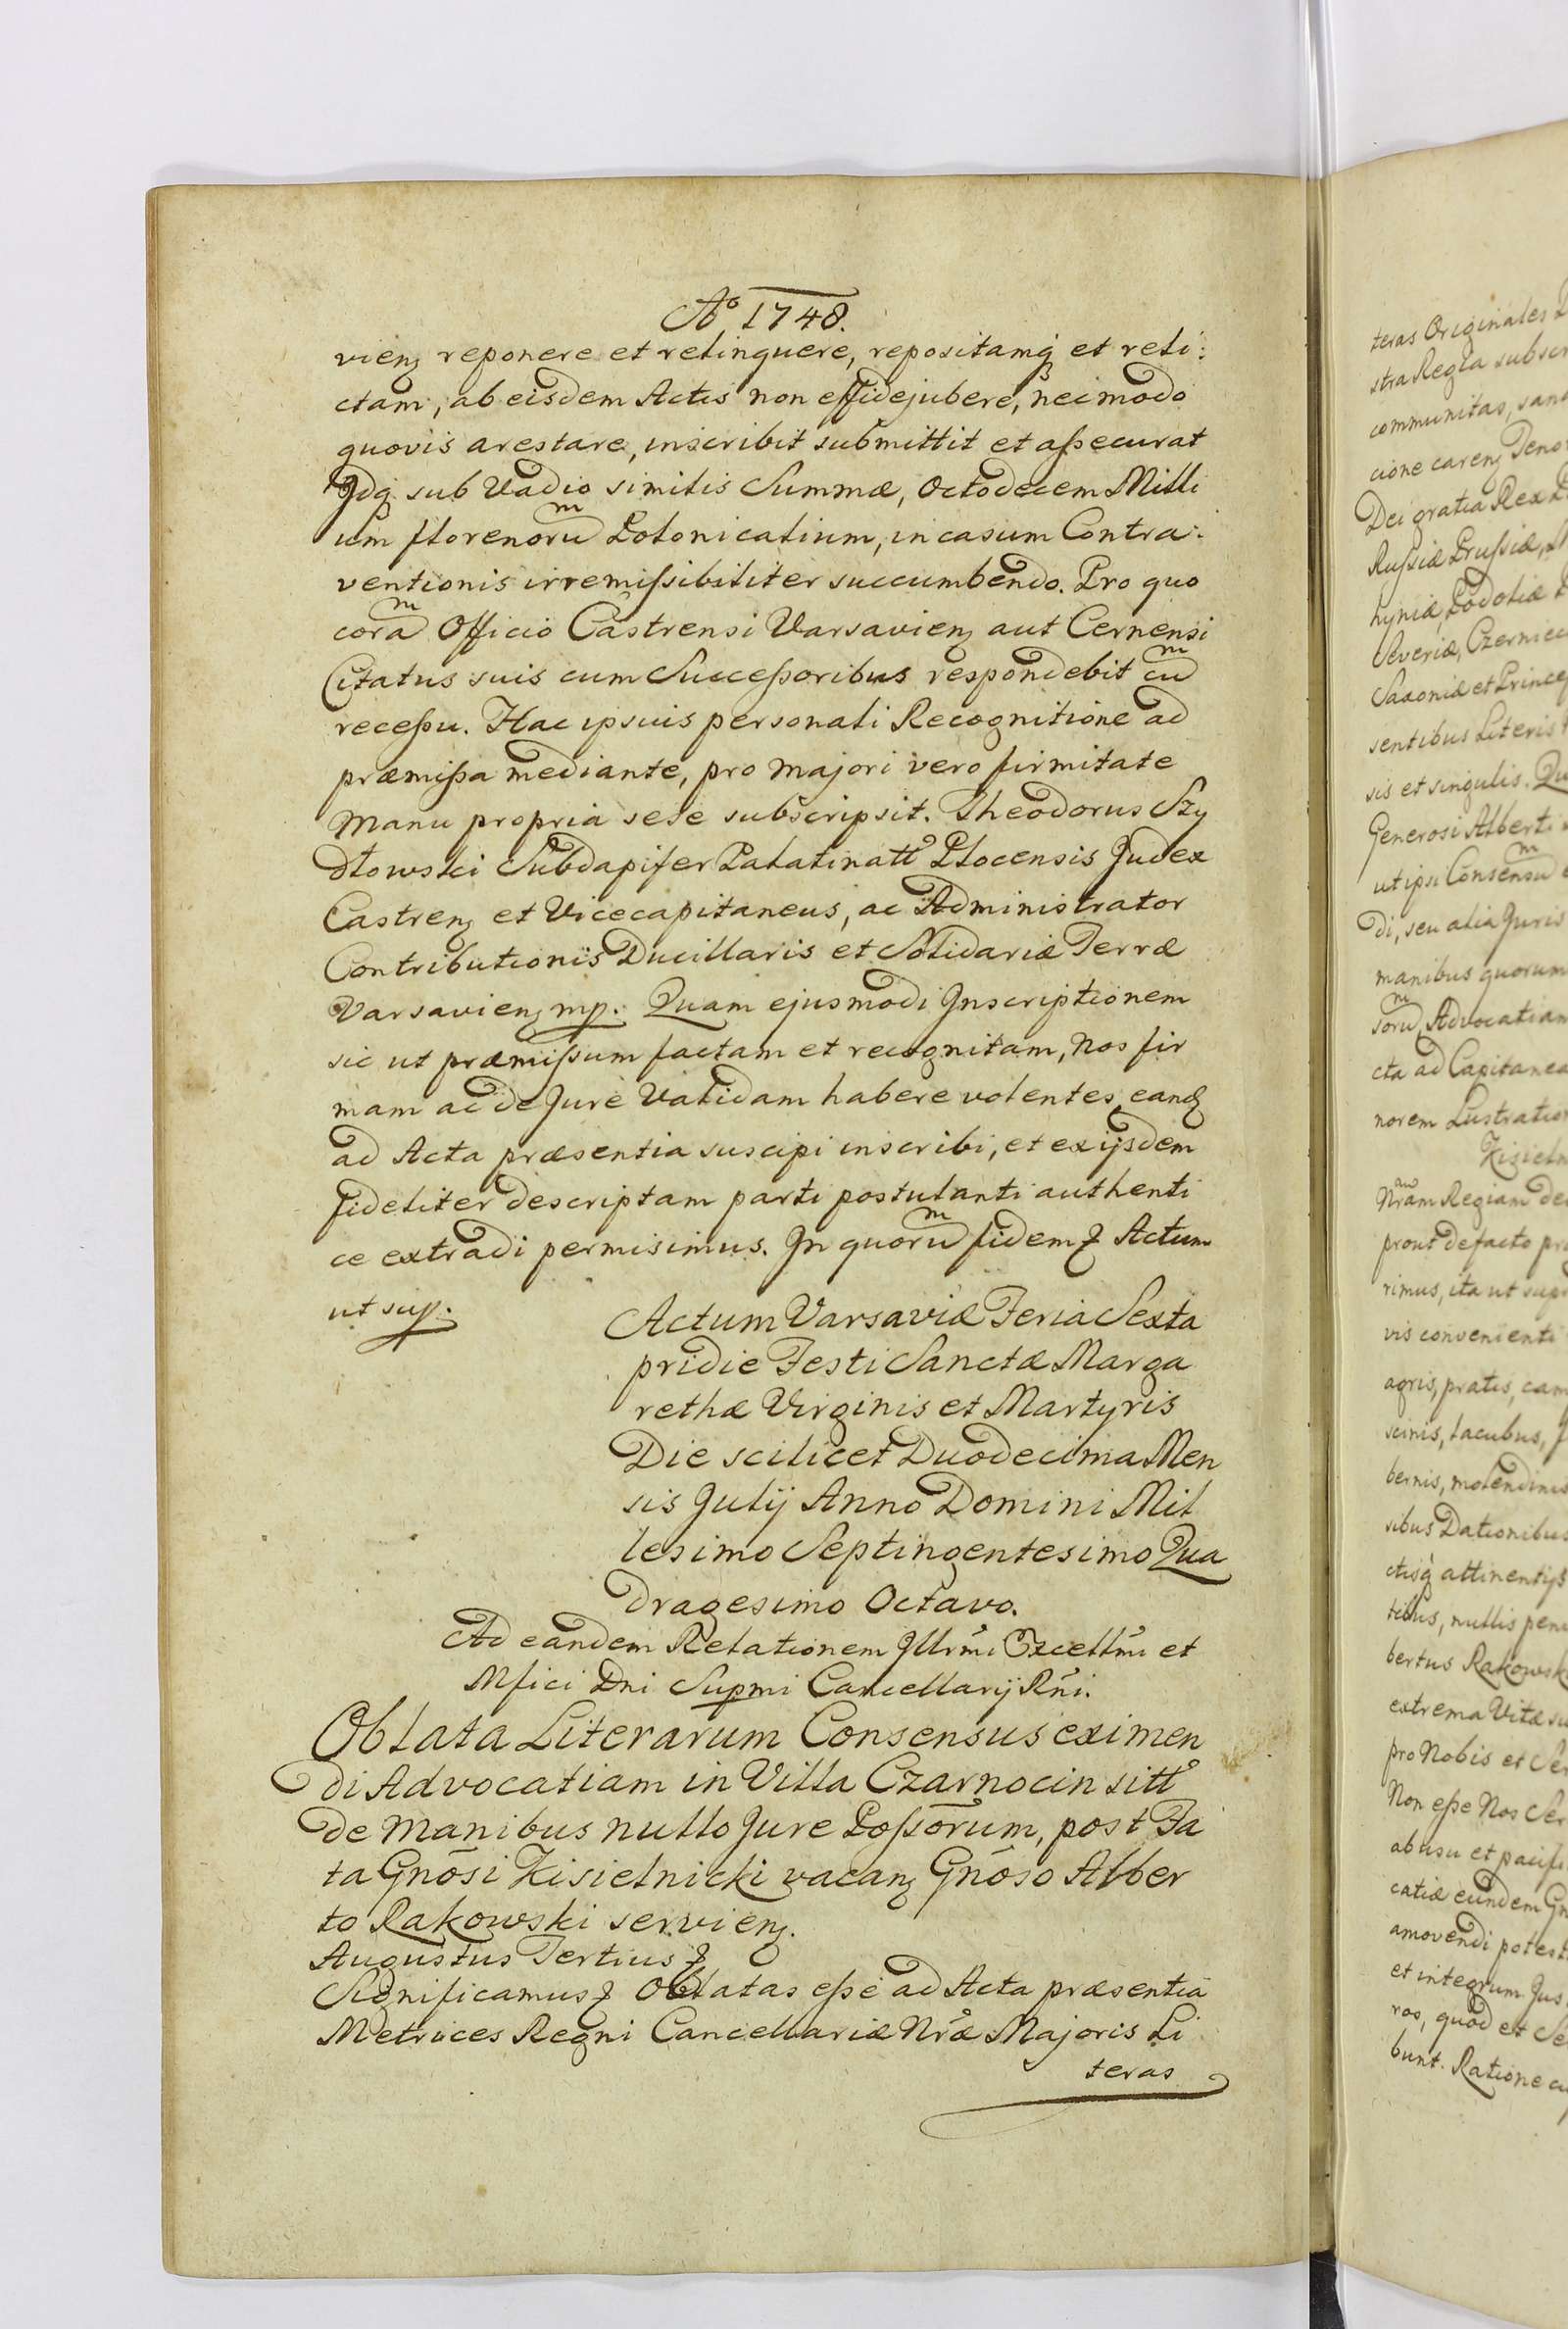 Aº 1748.
vienꝫ reponere et relinquere, repositamq̢ et reli:
ctam, ab eisdem Actis non effidejubere, nec modo
quovis arestare, inscribit submittit et aſsecurat
Jdq̢ sub Vadio similis Summæ, Octodecem Milli
um florenoruᵐ Polonicalium, in casum Contra:
ventionis irremiſsibiliter succumbendo. Pro quo
coraᵐ Officio Castrensi Varsavienꝫ aut Cernensi
Citatus suis cum Succeſsoribus respondebit cuᵐ
receſsu. Hac ipsuis personali Recognitione ad
præmiſsa mediante, pro majori vero firmitate
Manu propria sese subscripsit. Theodorus Szy
dłowski Subdapifer Palatinattº Plocensis Judex
Castrenꝫ et Vicecapitaneus, ac Administrator
Contributionis Ducillaris et Solidariæ Terræ
Varsavienꝫ mp. Quam ejusmodi Jnscriptionem
sic ut præmiſsum factam et recognitam, Nos fir
mam ac de Jure Validam habere volentes, eandꝫ
ad Acta præsentia suscipi inscribi, et ex ijsdem
fideliter descriptam parti postulanti authenti
ce extradi permisimus. Jn quoruᵐ fidem ꝛ Actum
ut sup.
Actum Varsaviæ Feria Sexta
pridie Festi Sanctæ Marga
rethæ Virginis et Martyris
Die scilicet Duodecima Men
sis Julij Anno Domini Mil
lesimo Septingentesimo Qua
dragesimo Octavo.
Ad eandem Relationem Jllrm̃i Excellm̃i et
Mfici Dni Supmi Cancellarij Rñi.
Oblata Literarum Consensus eximen
di Advocatiam in Villa Czarnocin sittº
de Manibus nullo Jure Poſsõrum, post Fa
ta Gnõsi Kisielnicki vacanꝫ Gnõso Alber
to Rakowski servienꝫ.
Augustus Tertius ꝛ
Significamus ꝛ Oblatas eſse ad Acta præsentia
Metrices Regni Cancellariæ Nr̃æ Majoris Li
teras
teras Originales
stra Regia
communitas,
cione carenꝫ
Dei gratia Rex
Ruſsiæ Pruſsiæ,
hyniæ, Podoliæ
Severiæ,
Saxoniæ et
sentibus Literis
sis et singulis.
Generosi Alberti
ut ipsi Consensuᵐ
di, seu alia Juris
manibus quorum
soruᵐ Advocatiam
cta ad
norem
Nram Regiam
prout defacto
rimus, ita ut
vis convenienti
agris, pratis,
scinis, lacubus,
bernis, molendinis
sibus Dationibus
ctisq̢ attinentijs
nullis
bertus
extrema Vitæ
pro Nobis et
Non eſse Nos
ab usu et
catiæ eundem
amovendi
et integrum Jus
ros, quod et
bunt. Ratione